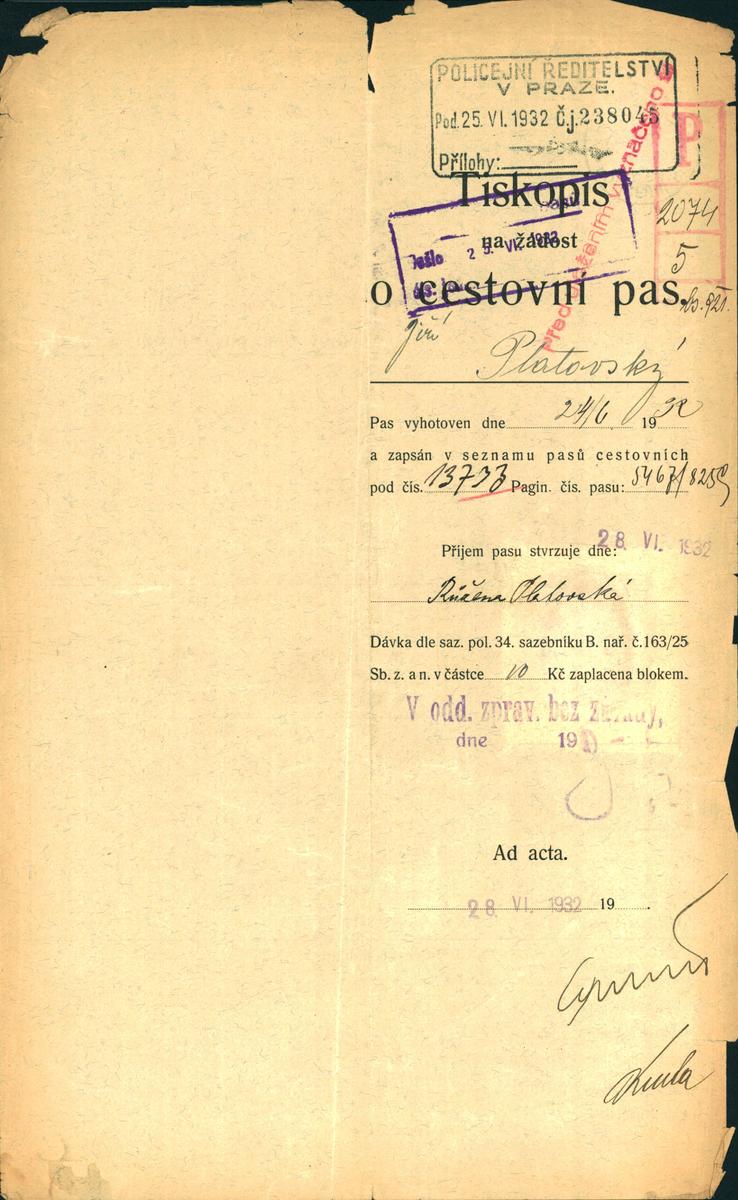 POLICEJNÍ ŘEDITELSTVÍ
V PRAZE.
Pod. 25. VI. 1932 Č.j. 238045
Přílohy:
P
2074
5
Tiskopis
na žádost
Došlo 25. VI. 1932
o cestovní pas.
Před uložením vyznačeno
Jiří
Platovský
Pas vyhotoven dne 24/6 1932
a zapsán v seznamu pasů cestovních
pod čís. 13733 Pagin. čís. pasu: 5467/825
Příjem pasu stvrzuje dne: 28. VI. 1932
Růžena Platovská
Dávka dle saz. pol. 34. sazebníku B. nař. č. 163/25
Sb. z. a n. v částce 10 Kč zaplacena blokem.
V odd. zprav. bez závady,
dne 193
Ad acta.
28. VI. 1932 19